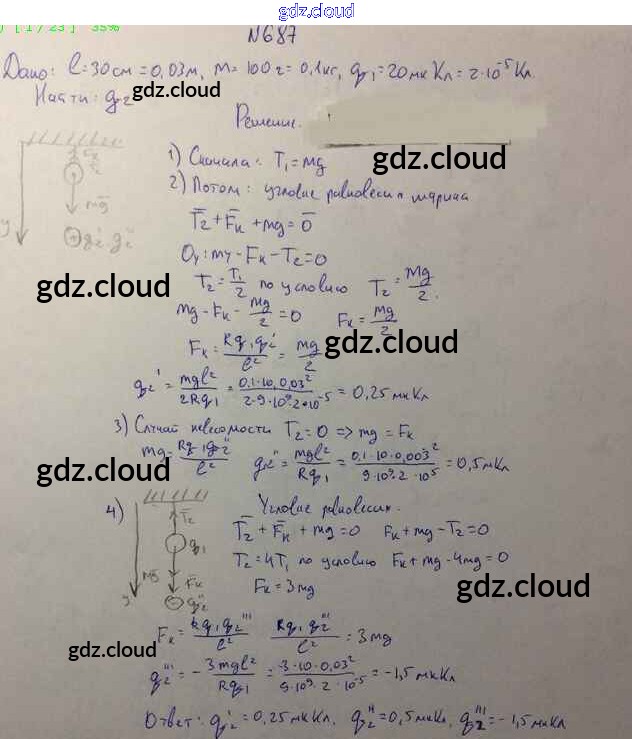 gdz.cloud
) [ 1 / 23 ] 35%
N687
Дано: l=30см=0,03м, m=100г=0,1кг, q₁=20мкКл=2·10⁻⁵Кл.
Найти: q₂
gdz.cloud
Решение.
1) Сначала: T₁=mg
gdz.cloud
2) Потом: условие равновесия шарика
T̅₂+F̅к+mg=0̅
mg̅
y
q₂' q₂''
gdz.cloud
Oy: mg-Fк-T₂=0
T₂=T₁/2 по условию T₂=mg/2.
gdz.cloud
gdz.cloud
mg-Fк-mg/2=0 Fк=mg/2
Fк=kq₁q₂'/l²=mg/2
gdz.cloud
q₂'=mgl²/2kq₁=0,1·10·0,03²/2·9·10⁹·2·10⁻⁵=0,25мкКл
3) Случай невесомости T₂=0 => mg=Fк
mg=kq₁q₂''/l² q₂''=mgl²/kq₁=0,1·10·0,003²/9·10⁹·2·10⁵=0,5мкКл
gdz.cloud
gdz.cloud
4) Условие равновесия.
T₂
q₁
mg̅ Fк
y
q₂'''
T̅₂+F̅к+mg=0 Fк+mg-T₂=0
T₂=4T₁ по условию Fк+mg-4mg=0
Fк=3mg
gdz.cloud
Fк=kq₁q₂'''/l² kq₁q₂'''/l²=3mg
gdz.cloud
q₂'''=-3mgl²/kq₁=-3·10·0,03²/9·10⁹·2·10⁻⁵=-1,5мкКл
Ответ: q₂'=0,25мкКл, q₂''=0,5мкКл, q₂'''=-1,5мкКл
gdz.cloud